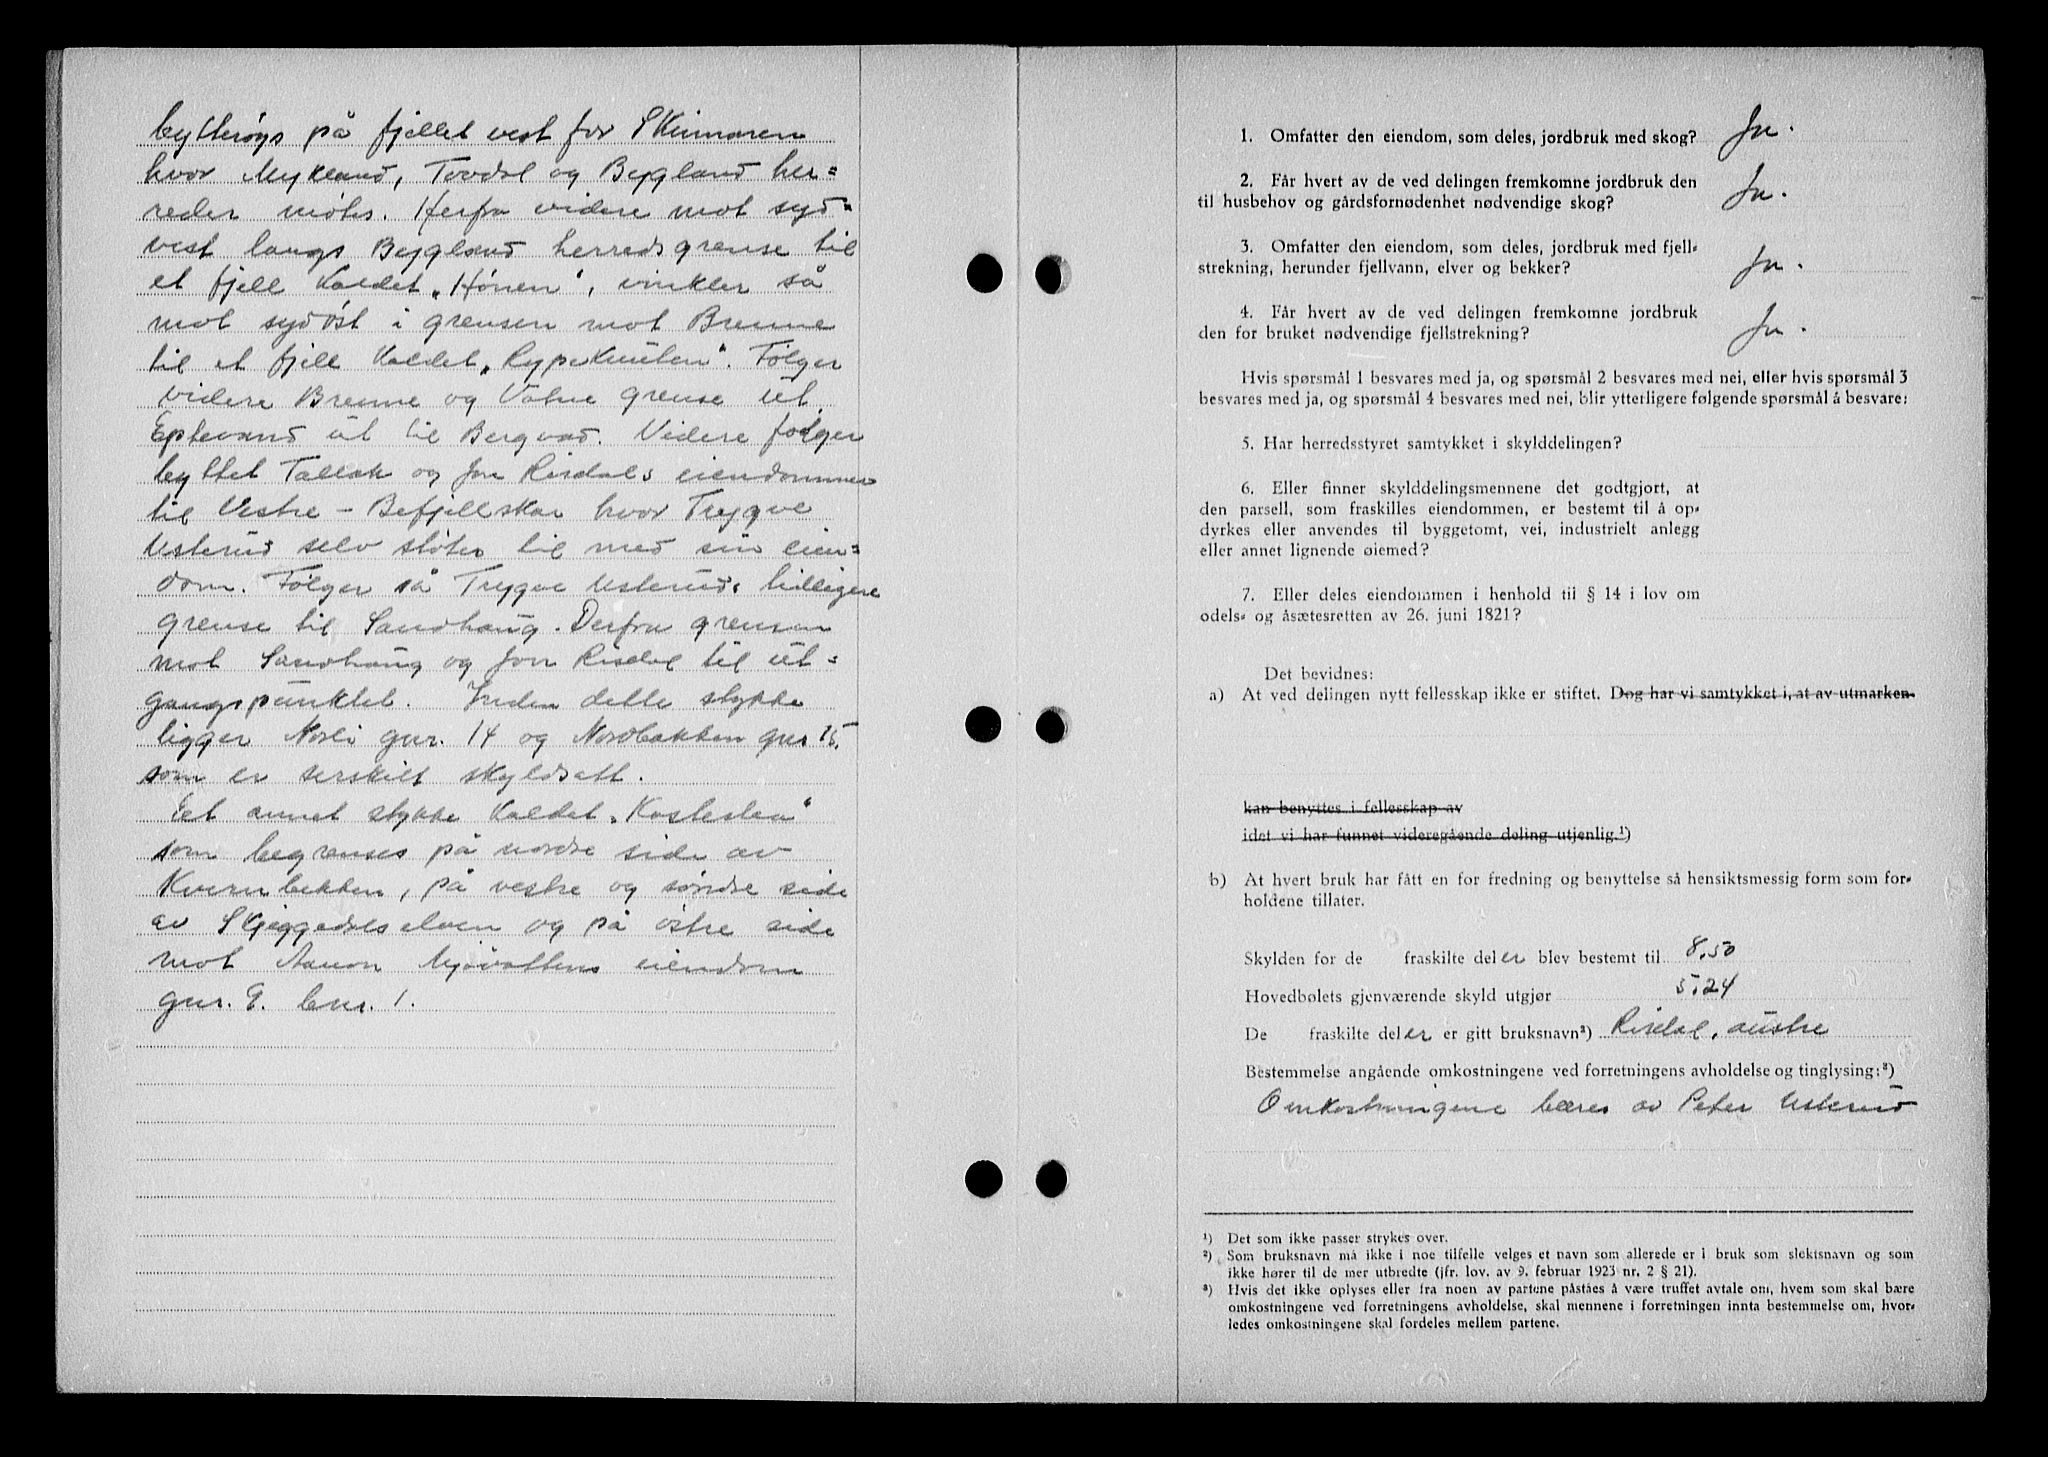 bytterøys på fjellet vest for Skinmoren
hvor Mykland, Tovdal og Bygland her=
reder møtes. Herfra videre mot syd=
vest langs Bygland herredsgrense til
et fjell kaldet „Hønen“, vinkler så
mot sydøst i grensen mot Brenne
til et fjell kaldet „Rypeknuten“. Følger
videre Brenne og Vatne grense ut
Eptevand ut til Bergvad. Videre følger
byttet Tallak og Jon Risdals eiendommer
til Vestre - Befjellskar hvor Trygve
Usterud selv støter til med sin eien=
dom. Følger så Trygve Usteruds tidligere
grense til Sandhaug. Derfra grensen
mot Sandhaug og Jon Risdal til ut=
gangspunktet. Inden dette stykke
ligger Nosli gnr. 14 og Nordbakken gnr 15.
som er serskilt skyldsatt.
Eet annet stykke kaldet „Kosteslea“
som begrenses på nordre side av
Kvernbekken, på vestre og søndre side
av Skjeggedalselven og på østre side
mot Aanon Mjåvattens eiendom
gnr. 9. bnr. 1.
1. Omfatter den eiendom, som deles, jordbruk med skog? Ja.
2. Får hvert av de ved delingen fremkomne jordbruk den
til husbehov og gårdsfornødenhet nødvendige skog? Ja.
3. Omfatter den eiendom, som deles, jordbruk med fjell-
strekning, herunder fjellvann, elver og bekker? Ja.
4. Får hvert av de ved delingen fremkomne jordbruk
den for bruket nødvendige fjellstrekning? Ja.
Hvis spørsmål 1 besvares med ja, og spørsmål 2 besvares med nei, eller hvis spørsmål 3
besvares med ja, og spørsmål 4 besvares med nei, blir ytterligere følgende spørsmål å besvare:
5. Har herredsstyret samtykket i skylddelingen?
6. Eller finner skylddelingsmennene det godtgjort, at
den parsell, som fraskilles eiendommen, er bestemt til å op-
dyrkes eller anvendes til byggetomt, vei, industrielt anlegg
eller annet lignende øiemed?
7. Eller deles eiendommen i henhold til § 14 i lov om
odels- og åsætesretten av 26. juni 1821?
Det bevidnes:
a) At ved delingen nytt fellesskap ikke er stiftet. Dog har vi samtykket i, at av utmarken
kan benyttes i fellesskap av
idet vi har funnet videregående deling utjenlig.¹)
b) At hvert bruk har fått en for fredning og benyttelse så hensiktsmessig form som for-
holdene tillater.
Skylden for de fraskilte deler blev bestemt til 8,50
Hovedbølets gjenværende skyld utgjør 5.24
De fraskilte deler er gitt bruksnavn²) Risdal, austre
Bestemmelse angående omkostningene ved forretningens avholdelse og tinglysing:³)
Omkostningene bæres av Peter Usterud
¹) Det som ikke passer strykes over.
²) Som bruksnavn må ikke i noe tilfelle velges et navn som allerede er i bruk som slektsnavn og som
ikke hører til de mer utbredte (jfr. lov. av 9. februar 1923 nr. 2 § 21).
³) Hvis det ikke oplyses eller fra noen av partene påståes å være truffet avtale om, hvem som skal bære
omkostningene ved forretningens avholdelse, skal mennene i forretningen innta bestemmelse om, hvor-
ledes omkostningene skal fordeles mellem partene.